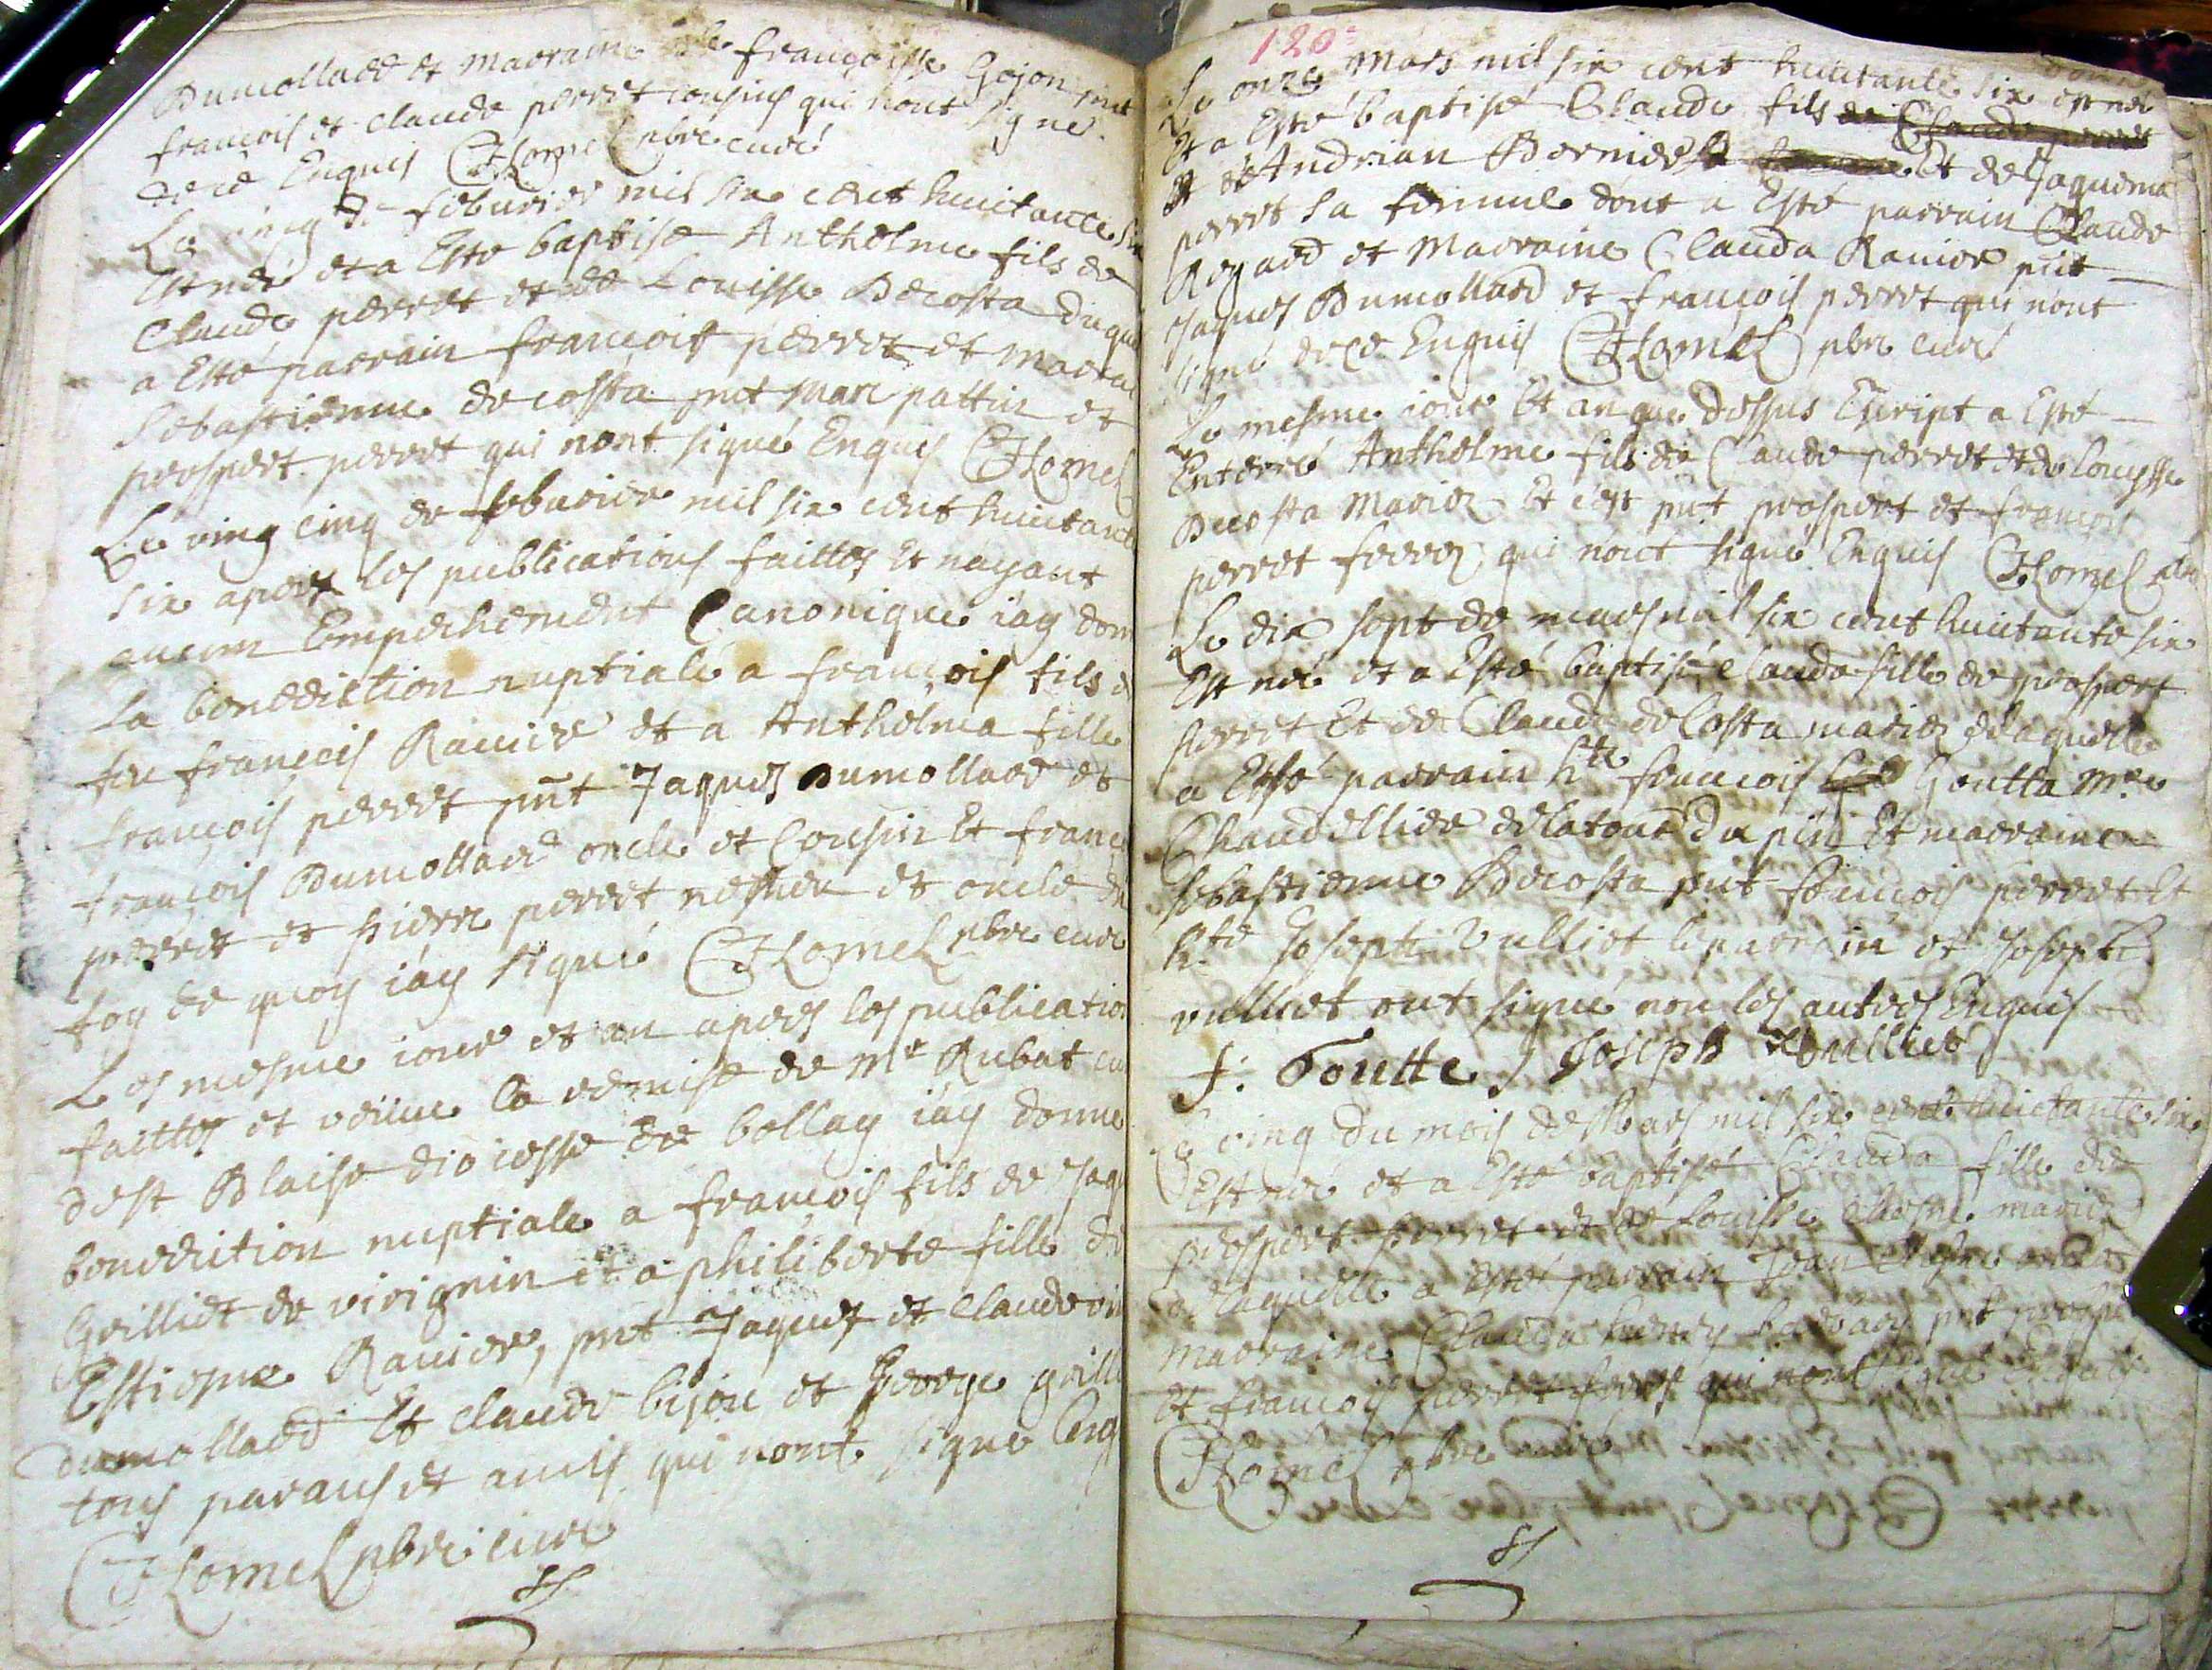 Dumollard et marraine françoisse Gojon pnt
françois et claude perret consins qui nont signé
de ce Enquis Lomel pbre curé
Le ving de feburier mil six cent huictante six
Est né et a Esté baptisé Anthelme fils de
Claude perret et de Louisse Decosta duquel
a Esté parrain françois perret et marrai
Sebastienne decosta pnt Marc pattin et
prospert perret qui nont signé Enquis Lomel
Le ving cinq de feburier mil six cent huictante
six apres les publications faittes Et nayant
aucun Empechement Canonique iay donn
La benediction nuptiale a françois fils d
feu françois Rauier et a Anthelma fille
françois perret pnt Jaques Dumollard et
françois Dumollard oncle et Cousin Et franç
perret et pierre perret nepueu et oncle En
foy de quoy iay signé Lomel pbre curé
Les mesme iour et an apres les publication
faittes et veüue la remise de Mr Rubat cu
de st Blaise diocesse de bellay iay donné
benediction nuptiale a françois fils de Jaqu
Grilliet de virignin et a philiberte fille de
Estiegne Rauier, pnt Jaques et Claude
dumollard Et claude bijou et George grilli
tous parans et amis qui nont signé Enq
Lomel pbre curé
120
Le onze Mars mil six cent huictante six est né
Et a Esté baptisé Claude fils de Claude perret
et de Andrian Bernier Et de Jaquema
perret sa femme dont a Esté parrain Claude
Rogard et Marraine Clauda Rauier pnt
Jaques Dumollard et françois perret qui nont
signé de ce Enquis Lomel pbre curé
Le mesme iour Et an que dessus Escript a Esté
Enterré Anthelme fils de Claude perret et de Louysse
Decosta Mariez Et cest pnt prospert et françois
perret freres qui nont signé Enquis Lomel pbre
Le dix sept de mars mil six cent huictante six
Est née et a Esté baptisé Clauda fille de prospert
perret Et de Claude de Costa mariez de laquelle
a Esté parrain hte françois Goutta Mre
Chandellier de la tour du pin Et marraine
Sebastienne Decosta pnt françois perret Et
hte Joseph Vulliet le parrain et Joseph
vulliet ont signé non les autres Enquis
f. Goutte Joseph Voulliet
Le ving du mois de Mars mil six cent huictante six
Est née et a Esté baptisé Clauda fille de
prospert perret et de Louisse mariez
de laquelle a Esté parrain Jean
marraine Clauda pnt prosper
Et françois perret freres qui nont signé Enquis
Lomel pbre curé